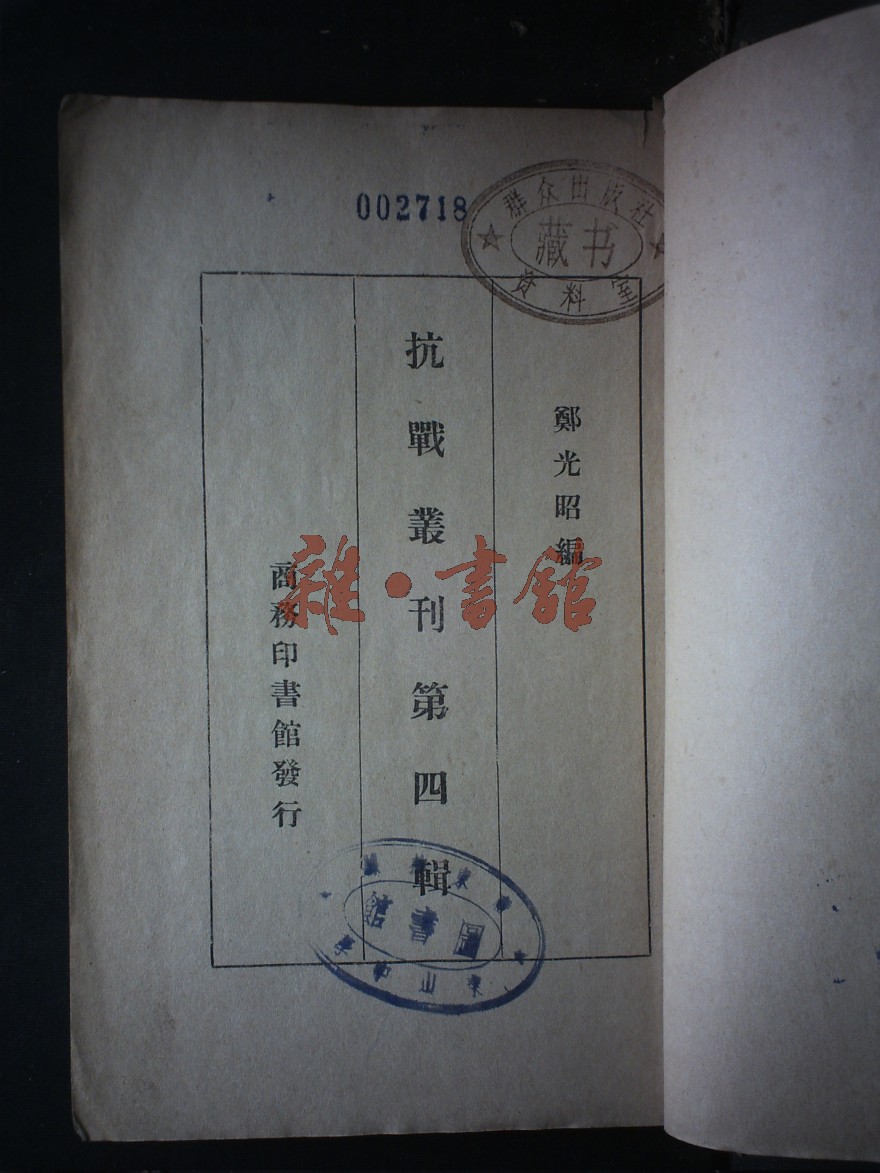 002718
群众出版社
藏书
资料室
鄭光昭編
抗戰叢刊第四輯
商務印書館發行
雜·書館
圖書館